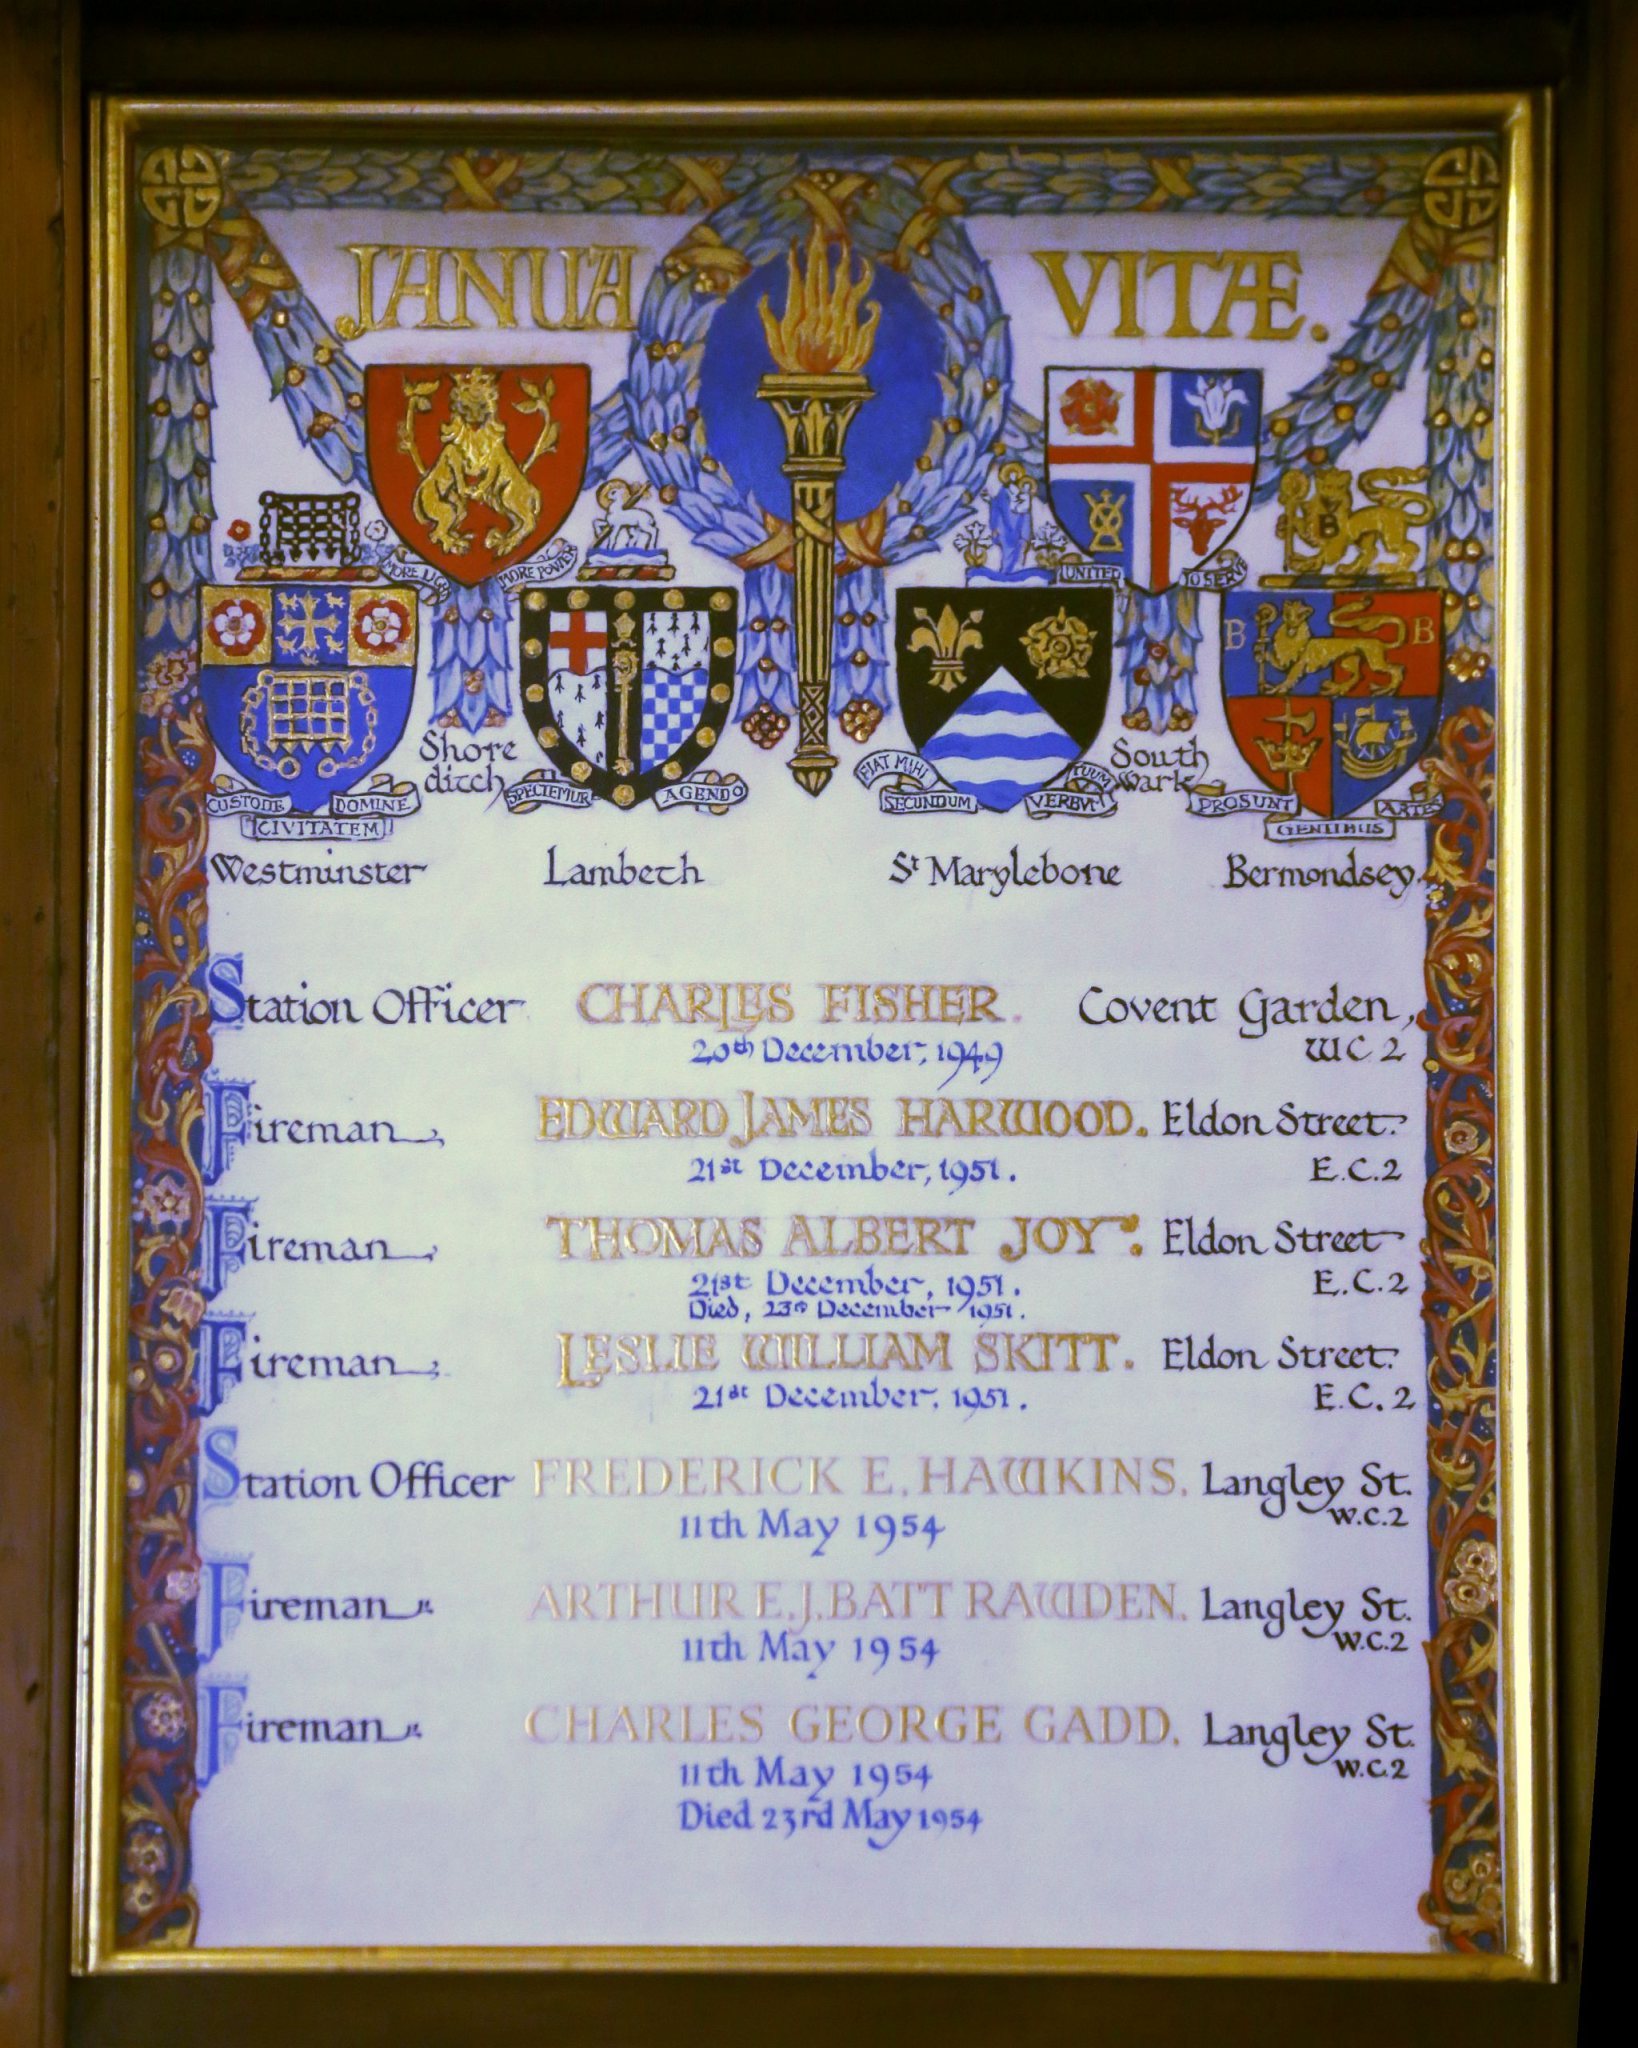 JANUA VITÆ.
MORE LIGHT MORE POWER
UNITED TO SERVE
B
B B
Shore
ditch
South
wark
CUSTODE DOMINE
CIVITATEM
SPECTEMUR AGENDO
FIAT MIHI
SECUNDUM VERBUM TUUM
PROSUNT GENTIBUS ARTES
Westminster Lambeth St Marylebone Bermondsey.
Station Officer CHARLES FISHER. Covent Garden,
20th December, 1949 WC2
Fireman EDWARD JAMES HARWOOD. Eldon Street.
21st December, 1951. E.C.2
Fireman THOMAS ALBERT JOY. Eldon Street
21st December, 1951. E.C.2
Died, 23rd December 1951.
Fireman LESLIE WILLIAM SKITT. Eldon Street.
21st December, 1951. E.C.2
Station Officer FREDERICK E. HAWKINS. Langley St.
11th May 1954 W.C.2
Fireman ARTHUR E.J. BATT RAWDEN. Langley St.
11th May 1954 W.C.2
Fireman CHARLES GEORGE GADD. Langley St.
11th May 1954 W.C.2
Died 23rd May 1954